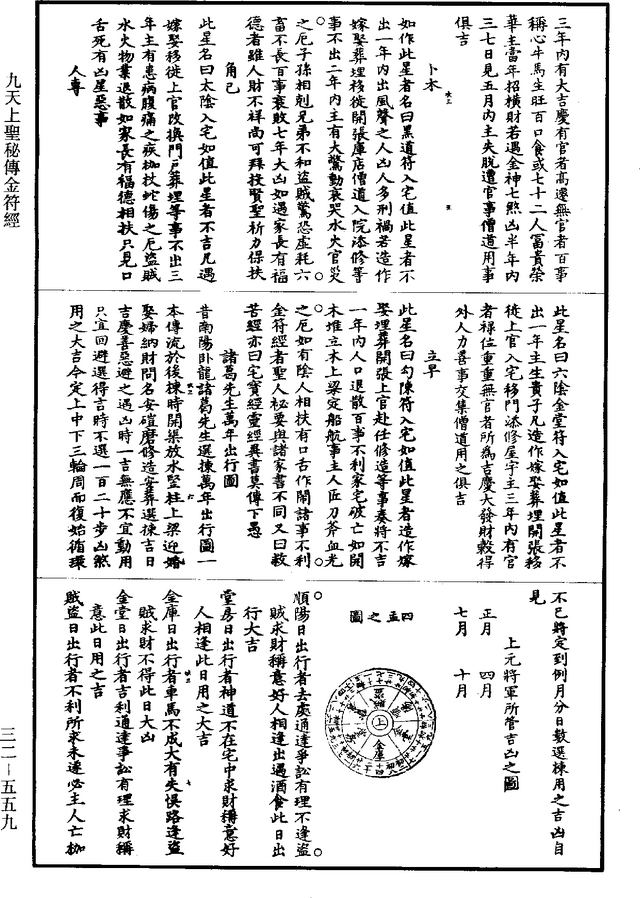 三年內有大吉慶有官者高遷無官者百事
稱心牛馬生旺百口食或七十二人冨貴榮
華主當年招橫財若遇金神七煞凶半年內
三七日見五月內主失脫遭官事僧道用事
俱吉
卜木
如作此星者名曰黑道符入宅值此星者不
出一年內出風聲之人凶人多刑禍若造作
嫁娶葬埋移徙開張庫店僧道入院添修等
事不出二年內主有大驚動哀哭水火官災
之厄子孫相剋兄弟不和盜賊驚恐虛耗六
畜不長百事衰敗七年大凶如遇家長有福
德者雖人財不祥尚可拜投賢聖祈力保扶
角己
此星名曰太陰入宅如值此星者不吉凡遇
嫁娶移徙上官改換門戶葬埋等事不出三
年主有患病腹痛之疾枷杖蛇傷之厄盜賊
水火物業退散如家長有福德相扶只見口
舌死有凶星惡事
人專
此星名曰六陰金堂符入宅如值此星者不
出一年主生貴子凡造作嫁娶葬埋開張移
徙上官入宅移門添修屋宇主三年內有官
者祿位重重無官者所為吉慶大發財穀得
外人力喜事交集僧道用之俱吉
立早
此星名曰勾陳符入宅如值此星者造作嫁
娶埋葬開張上官赴任修造等事奏將不吉
一年內人口退散百事不利家宅破亡如開
木堆立木上梁定船航事主人匠刀斧血光
之厄如有陰人相扶有口舌作鬧諸事不利
金符經者聖人祕要與諸家書不同又曰救
苦經亦曰宅寶經靈經異書莫傳下愚
諸葛先生萬年出行圖
昔南陽卧龍諸葛先生選揀萬年出行圖一
本傳流於後揀時開渠放水豎柱上梁迎婚
娶婦納財問名安磑磨修造安葬選揀吉日
吉慶善惡避之遇凶時一吉無應不宜動用
只宜回避選得吉時不選一百二十步凶煞
用之大吉今定上中下三輪周而復始循環
不已將定到例月分日數選揀用之吉凶自
見
上元將軍所管吉凶之圖
正月 四月
七月 十月
四孟之圖
上
金庫
順陽日出行者去處通達爭訟有理不逢盜
賊求財稱意好人相逢出遇酒食此日出
行大吉
堂房日出行者神道不在宅中求財稱意好
人相逢此日用之大吉
金庫日出行者車馬不成大有失悞路逢盜
賊求財不得此日大凶
金堂日出行者吉利通達事訟有理求財稱
意此日用之吉
賊盜日出行者不利所求未遂必主人亡枷
九天上聖秘傳金符經
三二—五五九